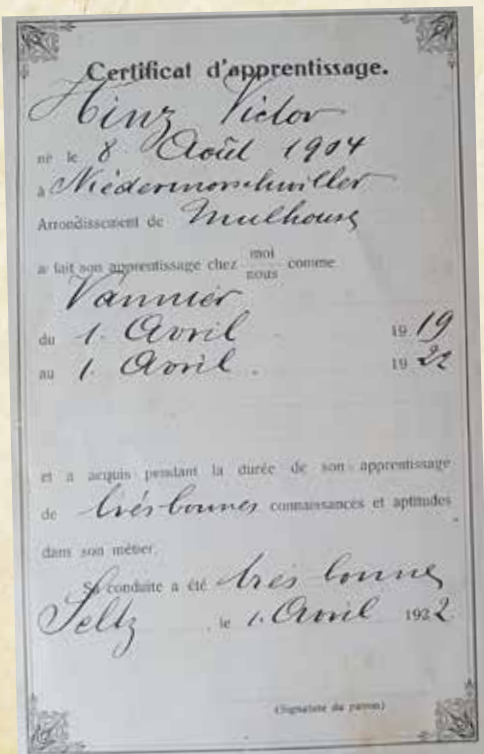 Certificat d'apprentissage.
Hinz Victor
né le 8 Août 1904
à Niedermorschwiller
Arrondissement de Mulhouse
a fait son apprentissage chez moi/nous comme
Vannier
du 1. Avril 1919
au 1. Avril 1922
et a acquis pendant la durée de son apprentissage
de très bonnes connaissances et aptitudes
dans son métier.
Sa conduite a été très bonne
Seltz, le 1. Avril 1922.
(Signature du patron)